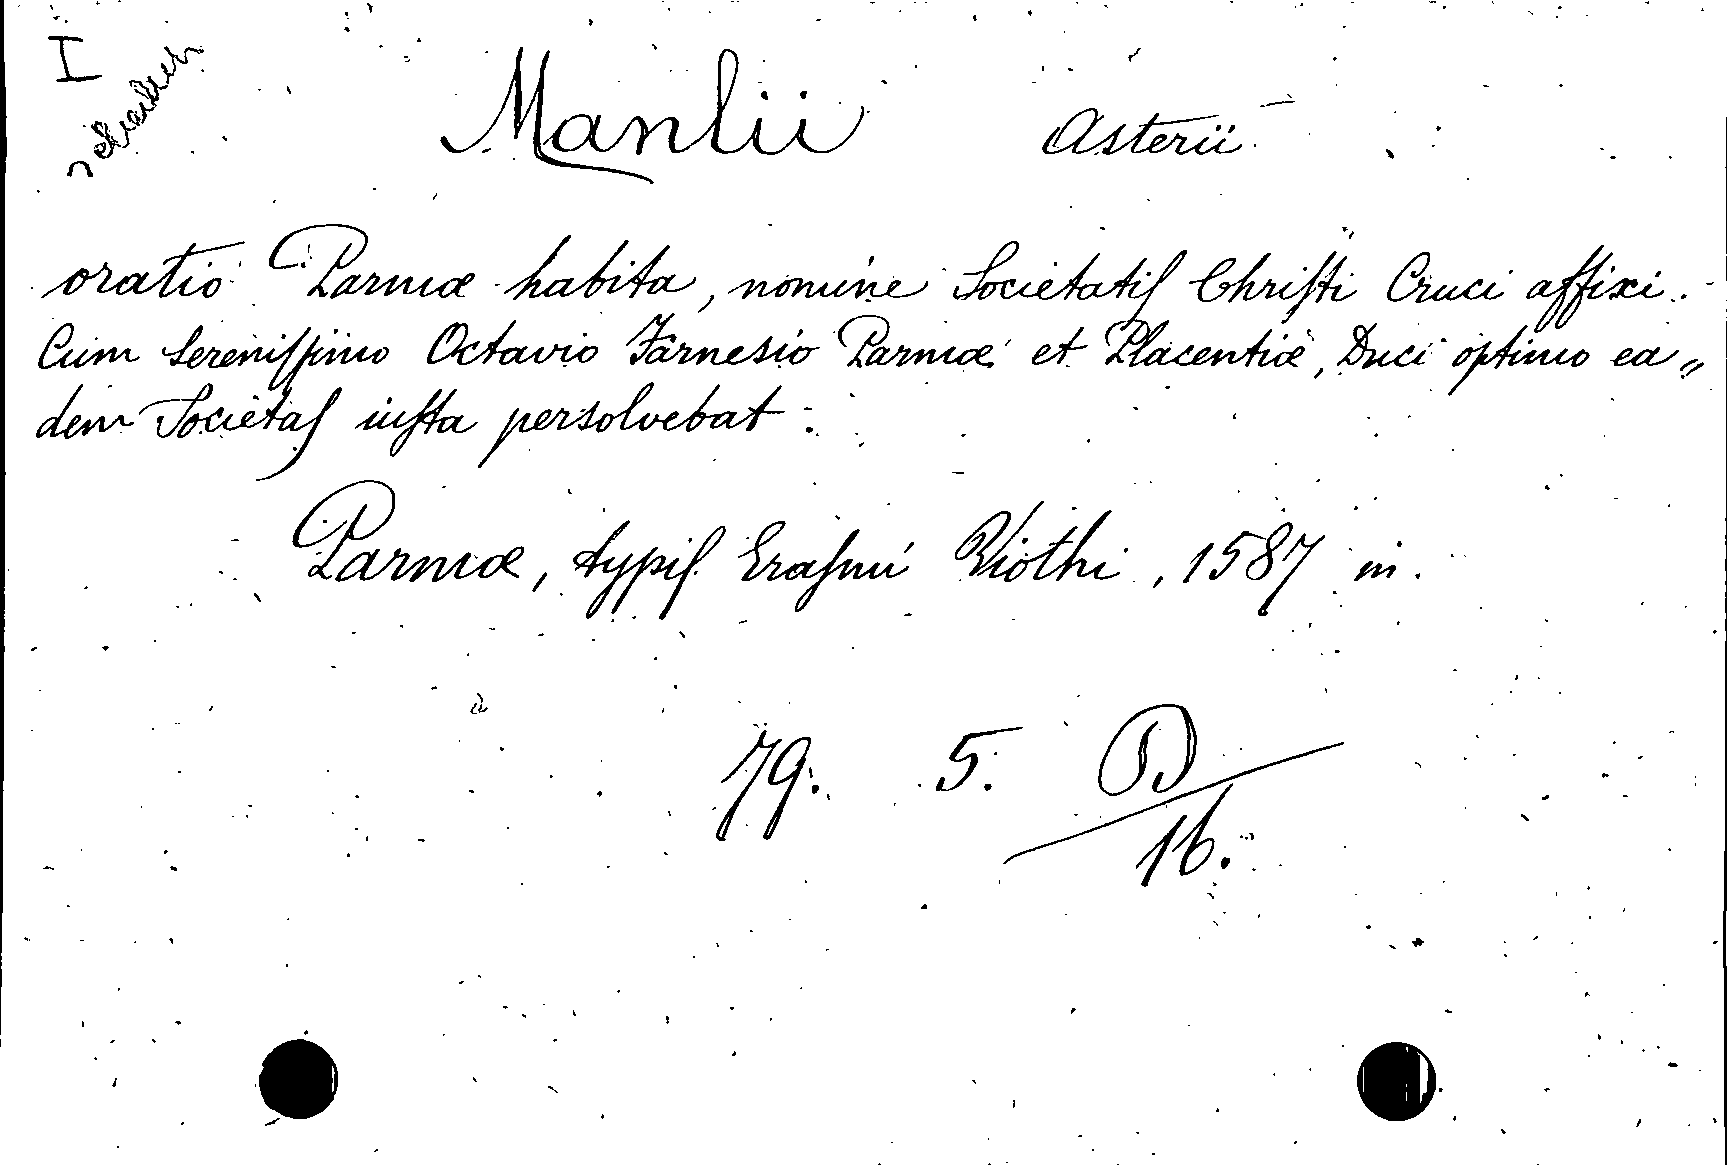 I
Manlii Asterii
oratio Parmæ habita, nomine Societatiſ Chriſti Cruci affixi.
Cum Sereniſſimo Octavio Farnesio Parmæ et Placentiæ, Duci optimo ea„
dem Societaſ iuſta persolvebat.
Parmæ, typiſ Eraſmi Viothi, 1587 in.
79. 5. D
16.